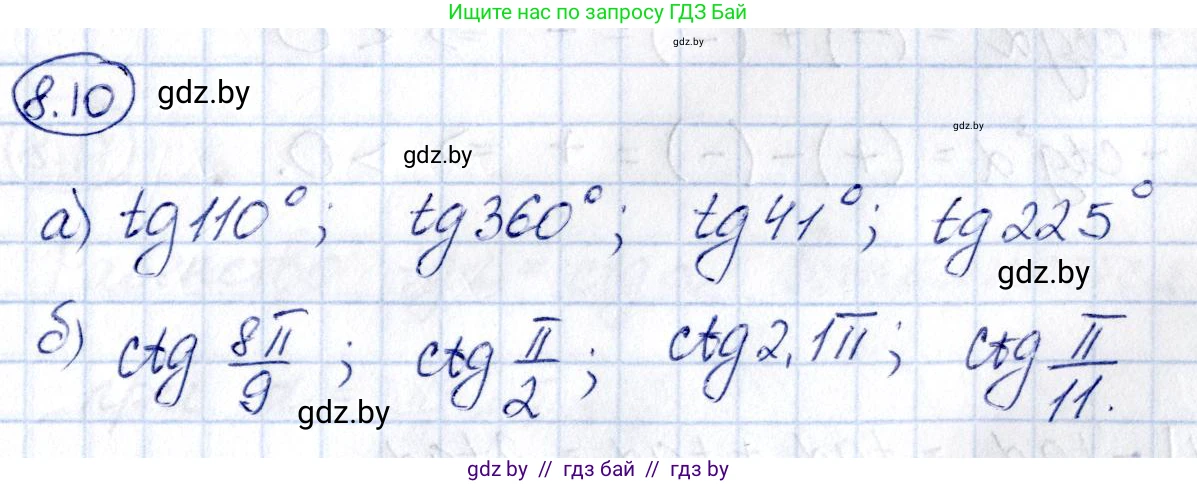 Ищите нас по запросу ГДЗ Бай
gdz.by
8.10 gdz.by
gdz.by
gdz.by
а) tg 110°; tg 360°; tg 41°; tg 225°
gdz.by
б) ctg 8π/9; ctg π/2; ctg 2,1π; ctg π/11.
gdz.by
gdz by // гдз бай // гдз by